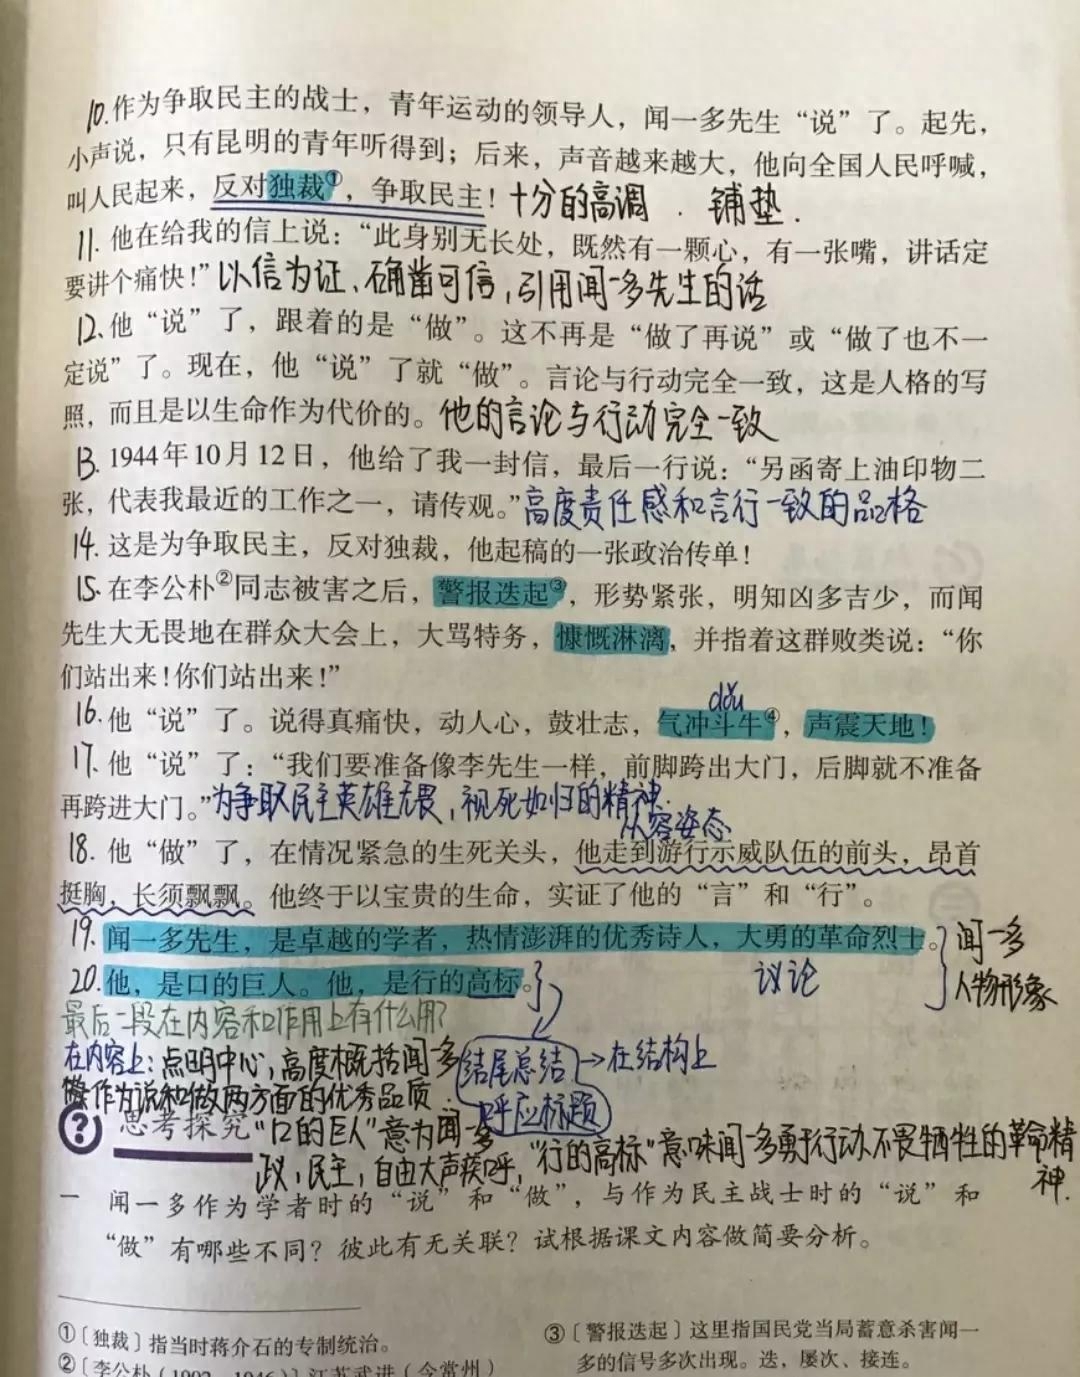 10.作为争取民主的战士，青年运动的领导人，闻一多先生“说”了。起先，
小声说，只有昆明的青年听得到；后来，声音越来越大，他向全国人民呼喊，
叫人民起来，反对独裁①，争取民主！十分的高调．铺垫．
11.他在给我的信上说：“此身别无长处，既然有一颗心，有一张嘴，讲话定
要讲个痛快！”以信为证、确凿可信，引用闻一多先生的话
12.他“说”了，跟着的是“做”。这不再是“做了再说”或“做了也不一
定说”了。现在，他“说”了就“做”。言论与行动完全一致，这是人格的写
照，而且是以生命作为代价的。他的言论与行动完全一致
13.1944年10月12日，他给了我一封信，最后一行说：“另函寄上油印物二
张，代表我最近的工作之一，请传观。”高度责任感和言行一致的品格
14.这是为争取民主，反对独裁，他起稿的一张政治传单！
15.在李公朴②同志被害之后，警报迭起③，形势紧张，明知凶多吉少，而闻
先生大无畏地在群众大会上，大骂特务，慷慨淋漓，并指着这群败类说：“你
们站出来！你们站出来！”
dǒu
16.他“说”了。说得真痛快，动人心，鼓壮志，气冲斗牛④，声震天地！
17.他“说”了：“我们要准备像李先生一样，前脚跨出大门，后脚就不准备
再跨进大门。”为争取民主英雄无畏，视死如归的精神．
从容姿态
18.他“做”了，在情况紧急的生死关头，他走到游行示威队伍的前头，昂首
挺胸，长须飘飘。他终于以宝贵的生命，实证了他的“言”和“行”。
19.闻一多先生，是卓越的学者，热情澎湃的优秀诗人，大勇的革命烈士。闻一多
20.他，是口的巨人。他，是行的高标。议论 人物形象
最后一段在内容和作用上有什么用？
在内容上：点明中心，高度概括闻一多 结尾总结→在结构上
作为说和做两方面的优秀品质． 呼应标题
思考探究“口的巨人”意为闻一多
政，民主，自由大声疾呼，“行的高标”意味闻一多勇于行动不畏牺牲的革命精
神．
一 闻一多作为学者时的“说”和“做”，与作为民主战士时的“说”和
“做”有哪些不同？彼此有无关联？试根据课文内容做简要分析。
①〔独裁〕指当时蒋介石的专制统治。
②〔李公朴（1902—1946）〕江苏武进（今常州）
③〔警报迭起〕这里指国民党当局蓄意杀害闻一
多的信号多次出现。迭，屡次、接连。